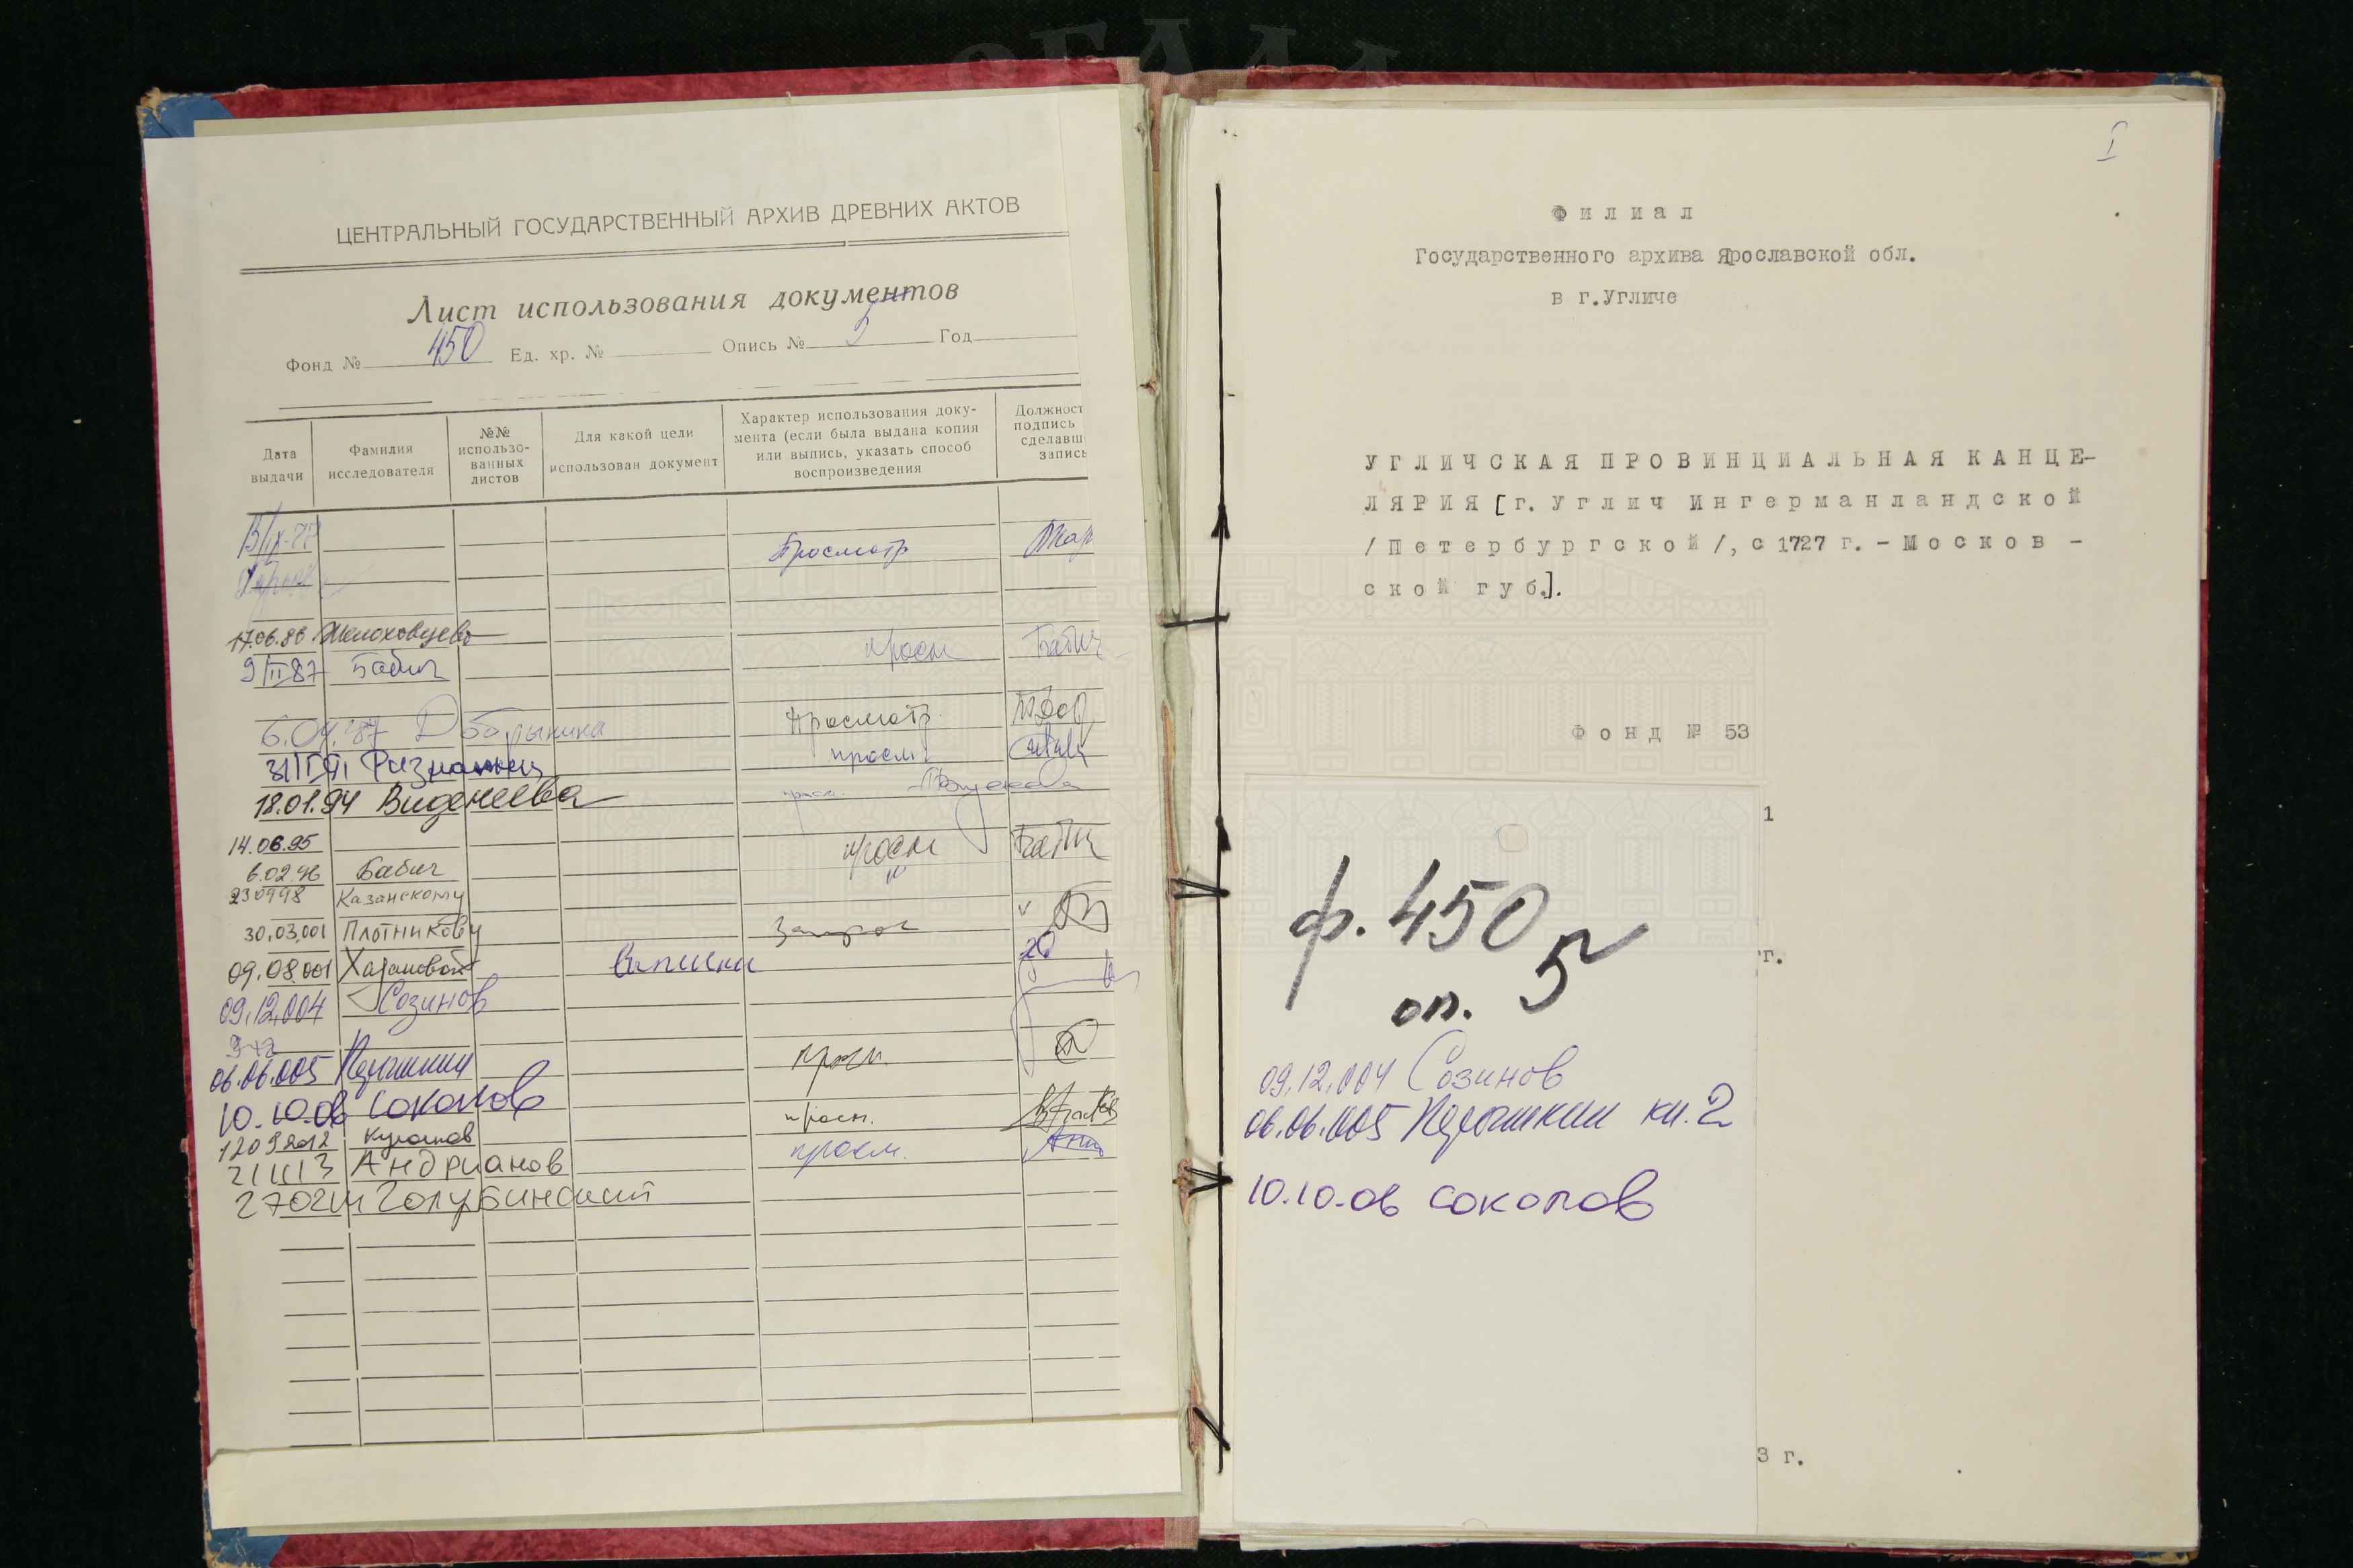 ЦЕНТРАЛЬНЫЙ ГОСУДАРСТВЕННЫЙ АРХИВ ДРЕВНИХ АКТОВ
Лист использования документов
Фонд № 450 Ед. хр. № Опись № 5 Год
Дата выдачи
Фамилия исследователя
№№ использо-
ванных
листов
Для какой цели
использован документ
Характер использования доку-
мента (если была выдана копия
или выпись, указать способ
воспроизведения
Должност
подпись
сделавш
запись
Просмотр
17.06.86
9/II 87 Бабич просм Бабич
6.04.87 Добрынина Просмотр
просм
18.01.94 Виденеева
14.06.95 просм
6.02.96 Бабич
230998 Казанскому
30.03.001 Плотникову Запрос
09.08.001 Выписки
09.12.004 Созинов
06.06.005 просм
10.10.06 Соколов просм.
12092012 просм.
211113 Андрианов
Голубинский
I
Филиал
Государственного архива Ярославской обл.
в г.Угличе
УГЛИЧСКАЯ ПРОВИНЦИАЛЬНАЯ КАНЦЕ-
ЛЯРИЯ [г. Углич Ингерманландской
/Петербургской/, с 1727 г. - Москов -
ской губ.].
Фонд № 53
1
ф. 450
оп. 5
гг.
09.12.004 Созинов
06.06.005 кн. 2
10.10.06 Соколов
3 г.